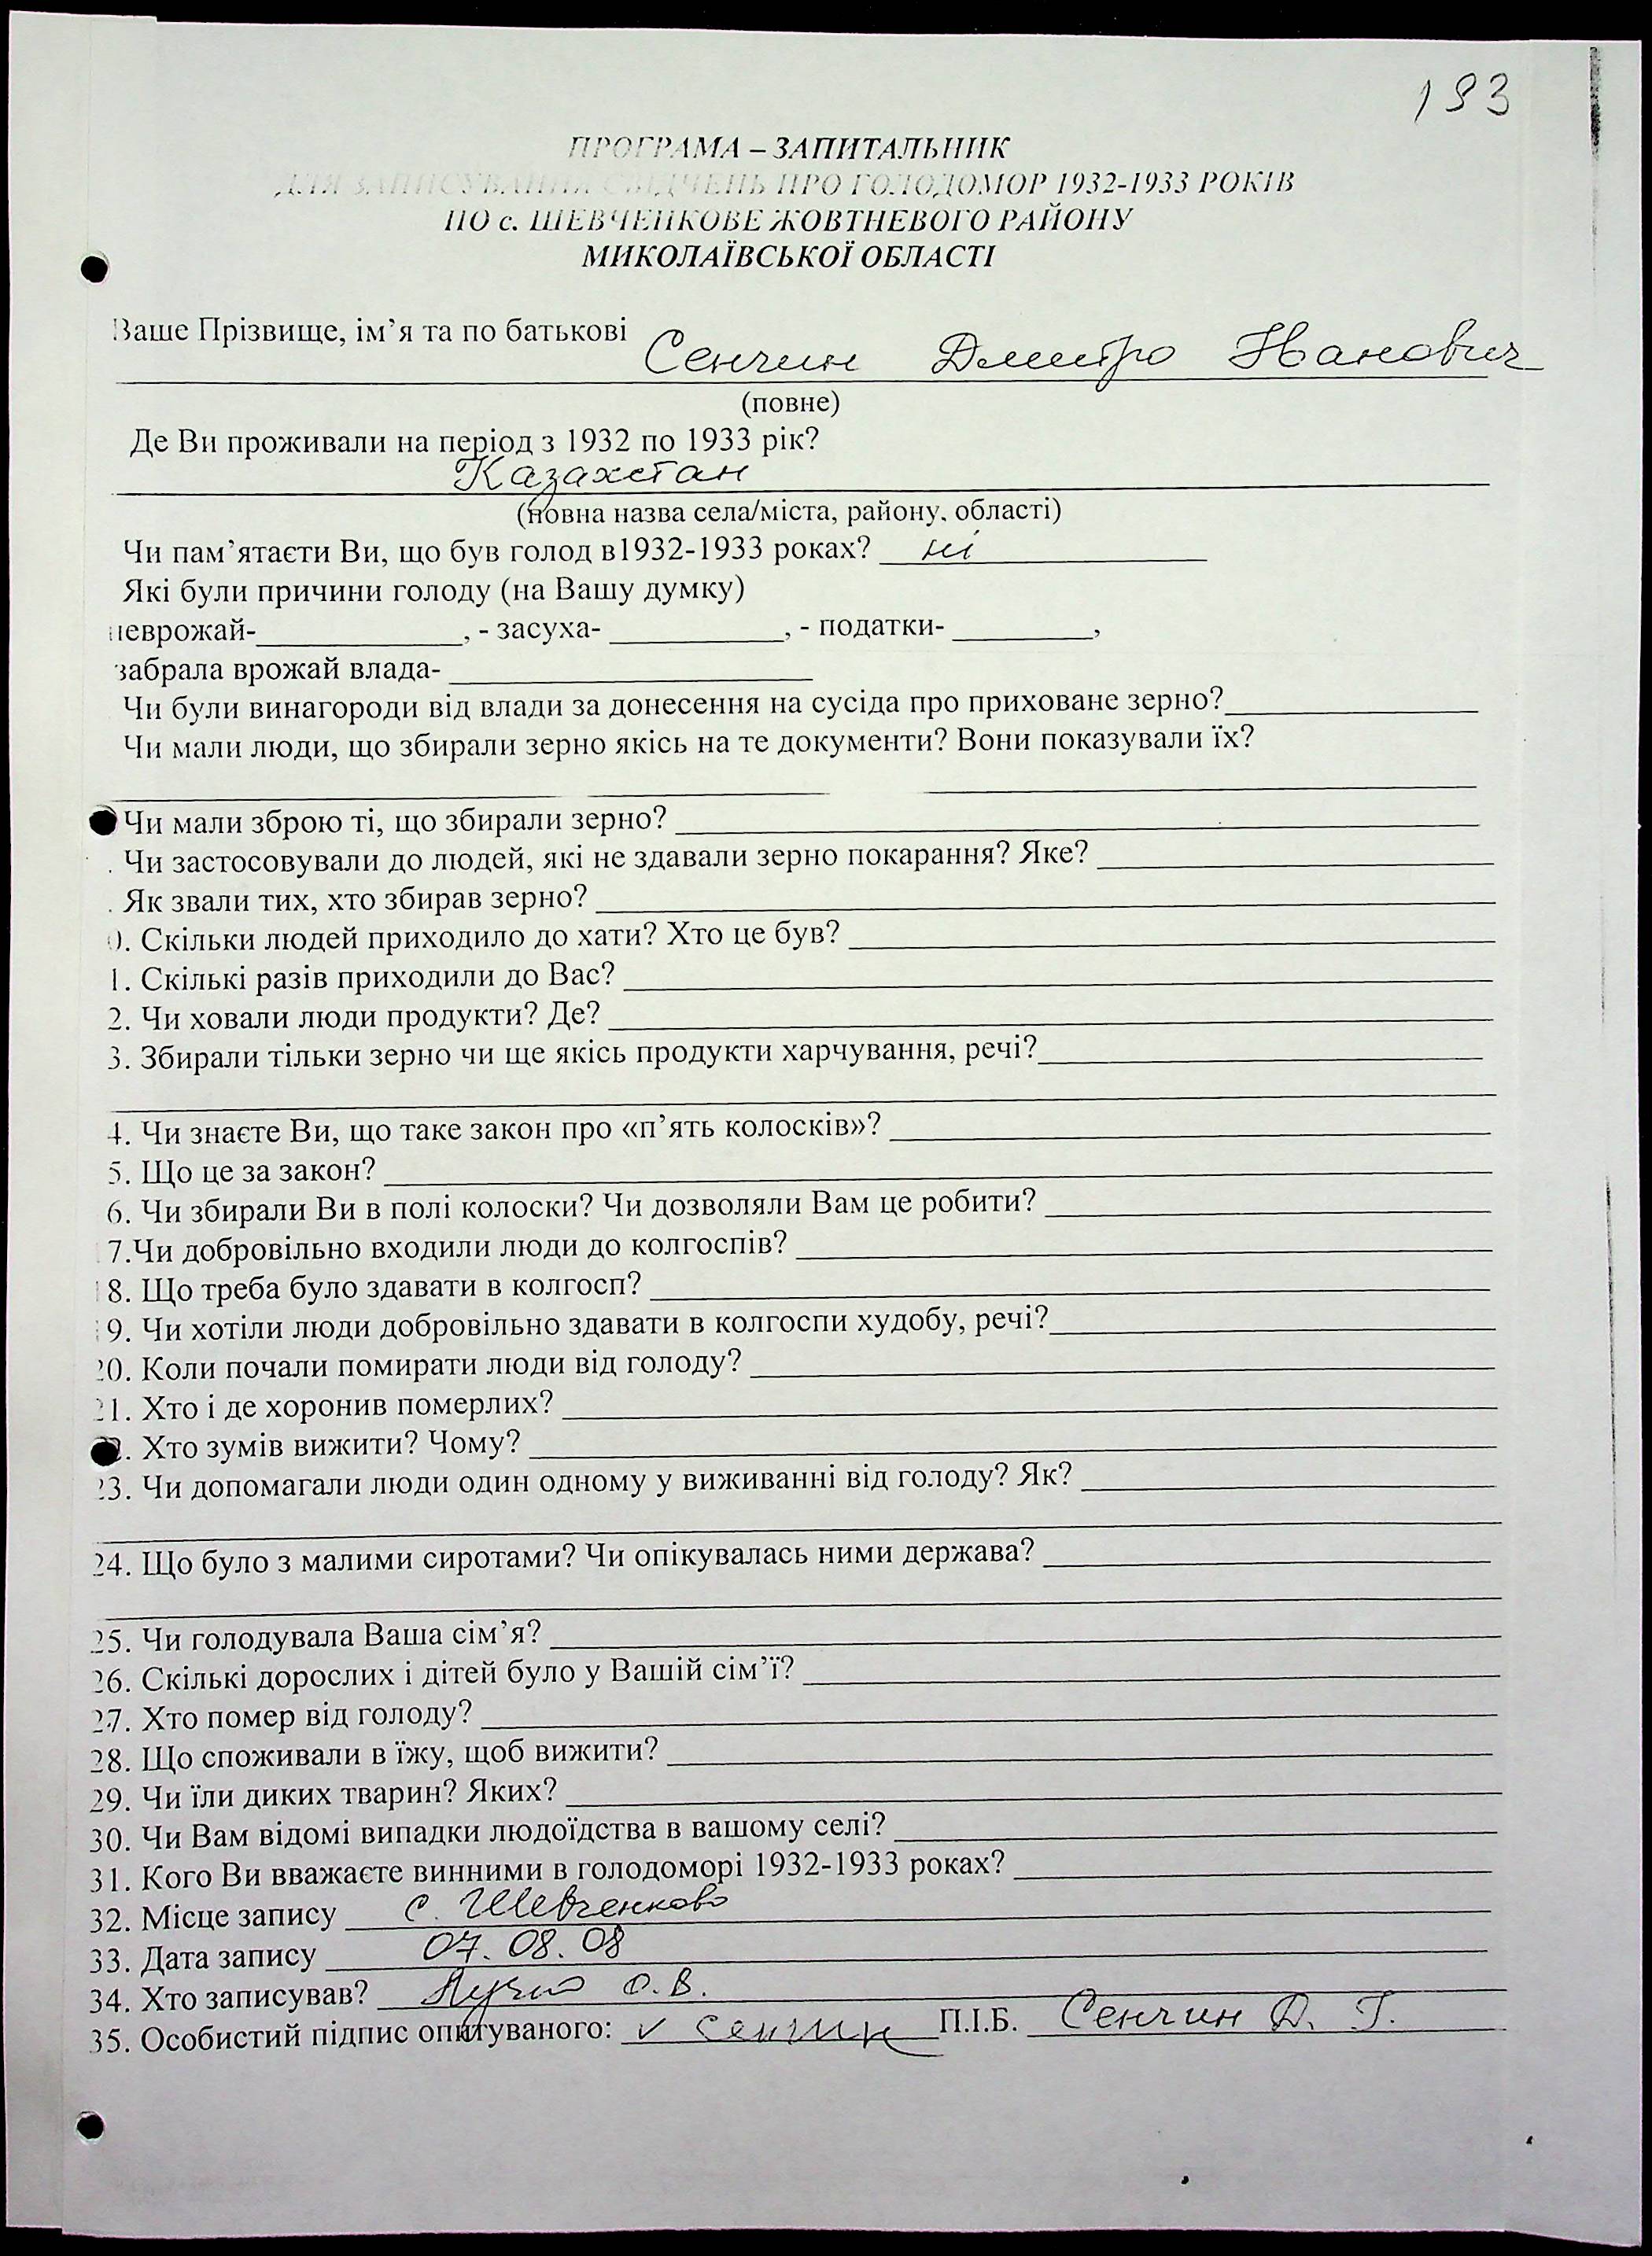 193
ПРОГРАМА – ЗАПИТАЛЬНИК
ДЛЯ ЗАПИСУВАННЯ СВІДЧЕНЬ ПРО ГОЛОДОМОР 1932-1933 РОКІВ
ПО с. ШЕВЧЕНКОВЕ ЖОВТНЕВОГО РАЙОНУ
МИКОЛАЇВСЬКОЇ ОБЛАСТІ
Ваше Прізвище, ім’я та по батькові
Сенчин Дмитро Іванович
(повне)
Де Ви проживали на період з 1932 по 1933 рік?
Казахстан
(повна назва села/міста, району, області)
Чи пам’ятаєти Ви, що був голод в1932-1933 роках? ні
Які були причини голоду (на Вашу думку)
неврожай-____________, - засуха- ___________, - податки- _________,
забрала врожай влада- ______________________
Чи були винагороди від влади за донесення на сусіда про приховане зерно?
Чи мали люди, що збирали зерно якісь на те документи? Вони показували їх?
Чи мали зброю ті, що збирали зерно?
. Чи застосовували до людей, які не здавали зерно покарання? Яке?
. Як звали тих, хто збирав зерно?
0. Скільки людей приходило до хати? Хто це був?
1. Скількі разів приходили до Вас?
2. Чи ховали люди продукти? Де?
3. Збирали тільки зерно чи ще якісь продукти харчування, речі?
4. Чи знаєте Ви, що таке закон про «п’ять колосків»?
5. Що це за закон?
6. Чи збирали Ви в полі колоски? Чи дозволяли Вам це робити?
7.Чи добровільно входили люди до колгоспів?
18. Що треба було здавати в колгосп?
19. Чи хотіли люди добровільно здавати в колгоспи худобу, речі?
20. Коли почали помирати люди від голоду?
21. Хто і де хоронив померлих?
2. Хто зумів вижити? Чому?
23. Чи допомагали люди один одному у виживанні від голоду? Як?
24. Що було з малими сиротами? Чи опікувалась ними держава?
25. Чи голодувала Ваша сім’я?
26. Скількі дорослих і дітей було у Вашій сім’ї?
27. Хто помер від голоду?
28. Що споживали в їжу, щоб вижити?
29. Чи їли диких тварин? Яких?
30. Чи Вам відомі випадки людоїдства в вашому селі?
31. Кого Ви вважаєте винними в голодоморі 1932-1933 роках?
32. Місце запису с. Шевченково
33. Дата запису 07.08.08
34. Хто записував? О.В.
35. Особистий підпис опитуваного: v Сенчин П.І.Б. Сенчин Д. І.